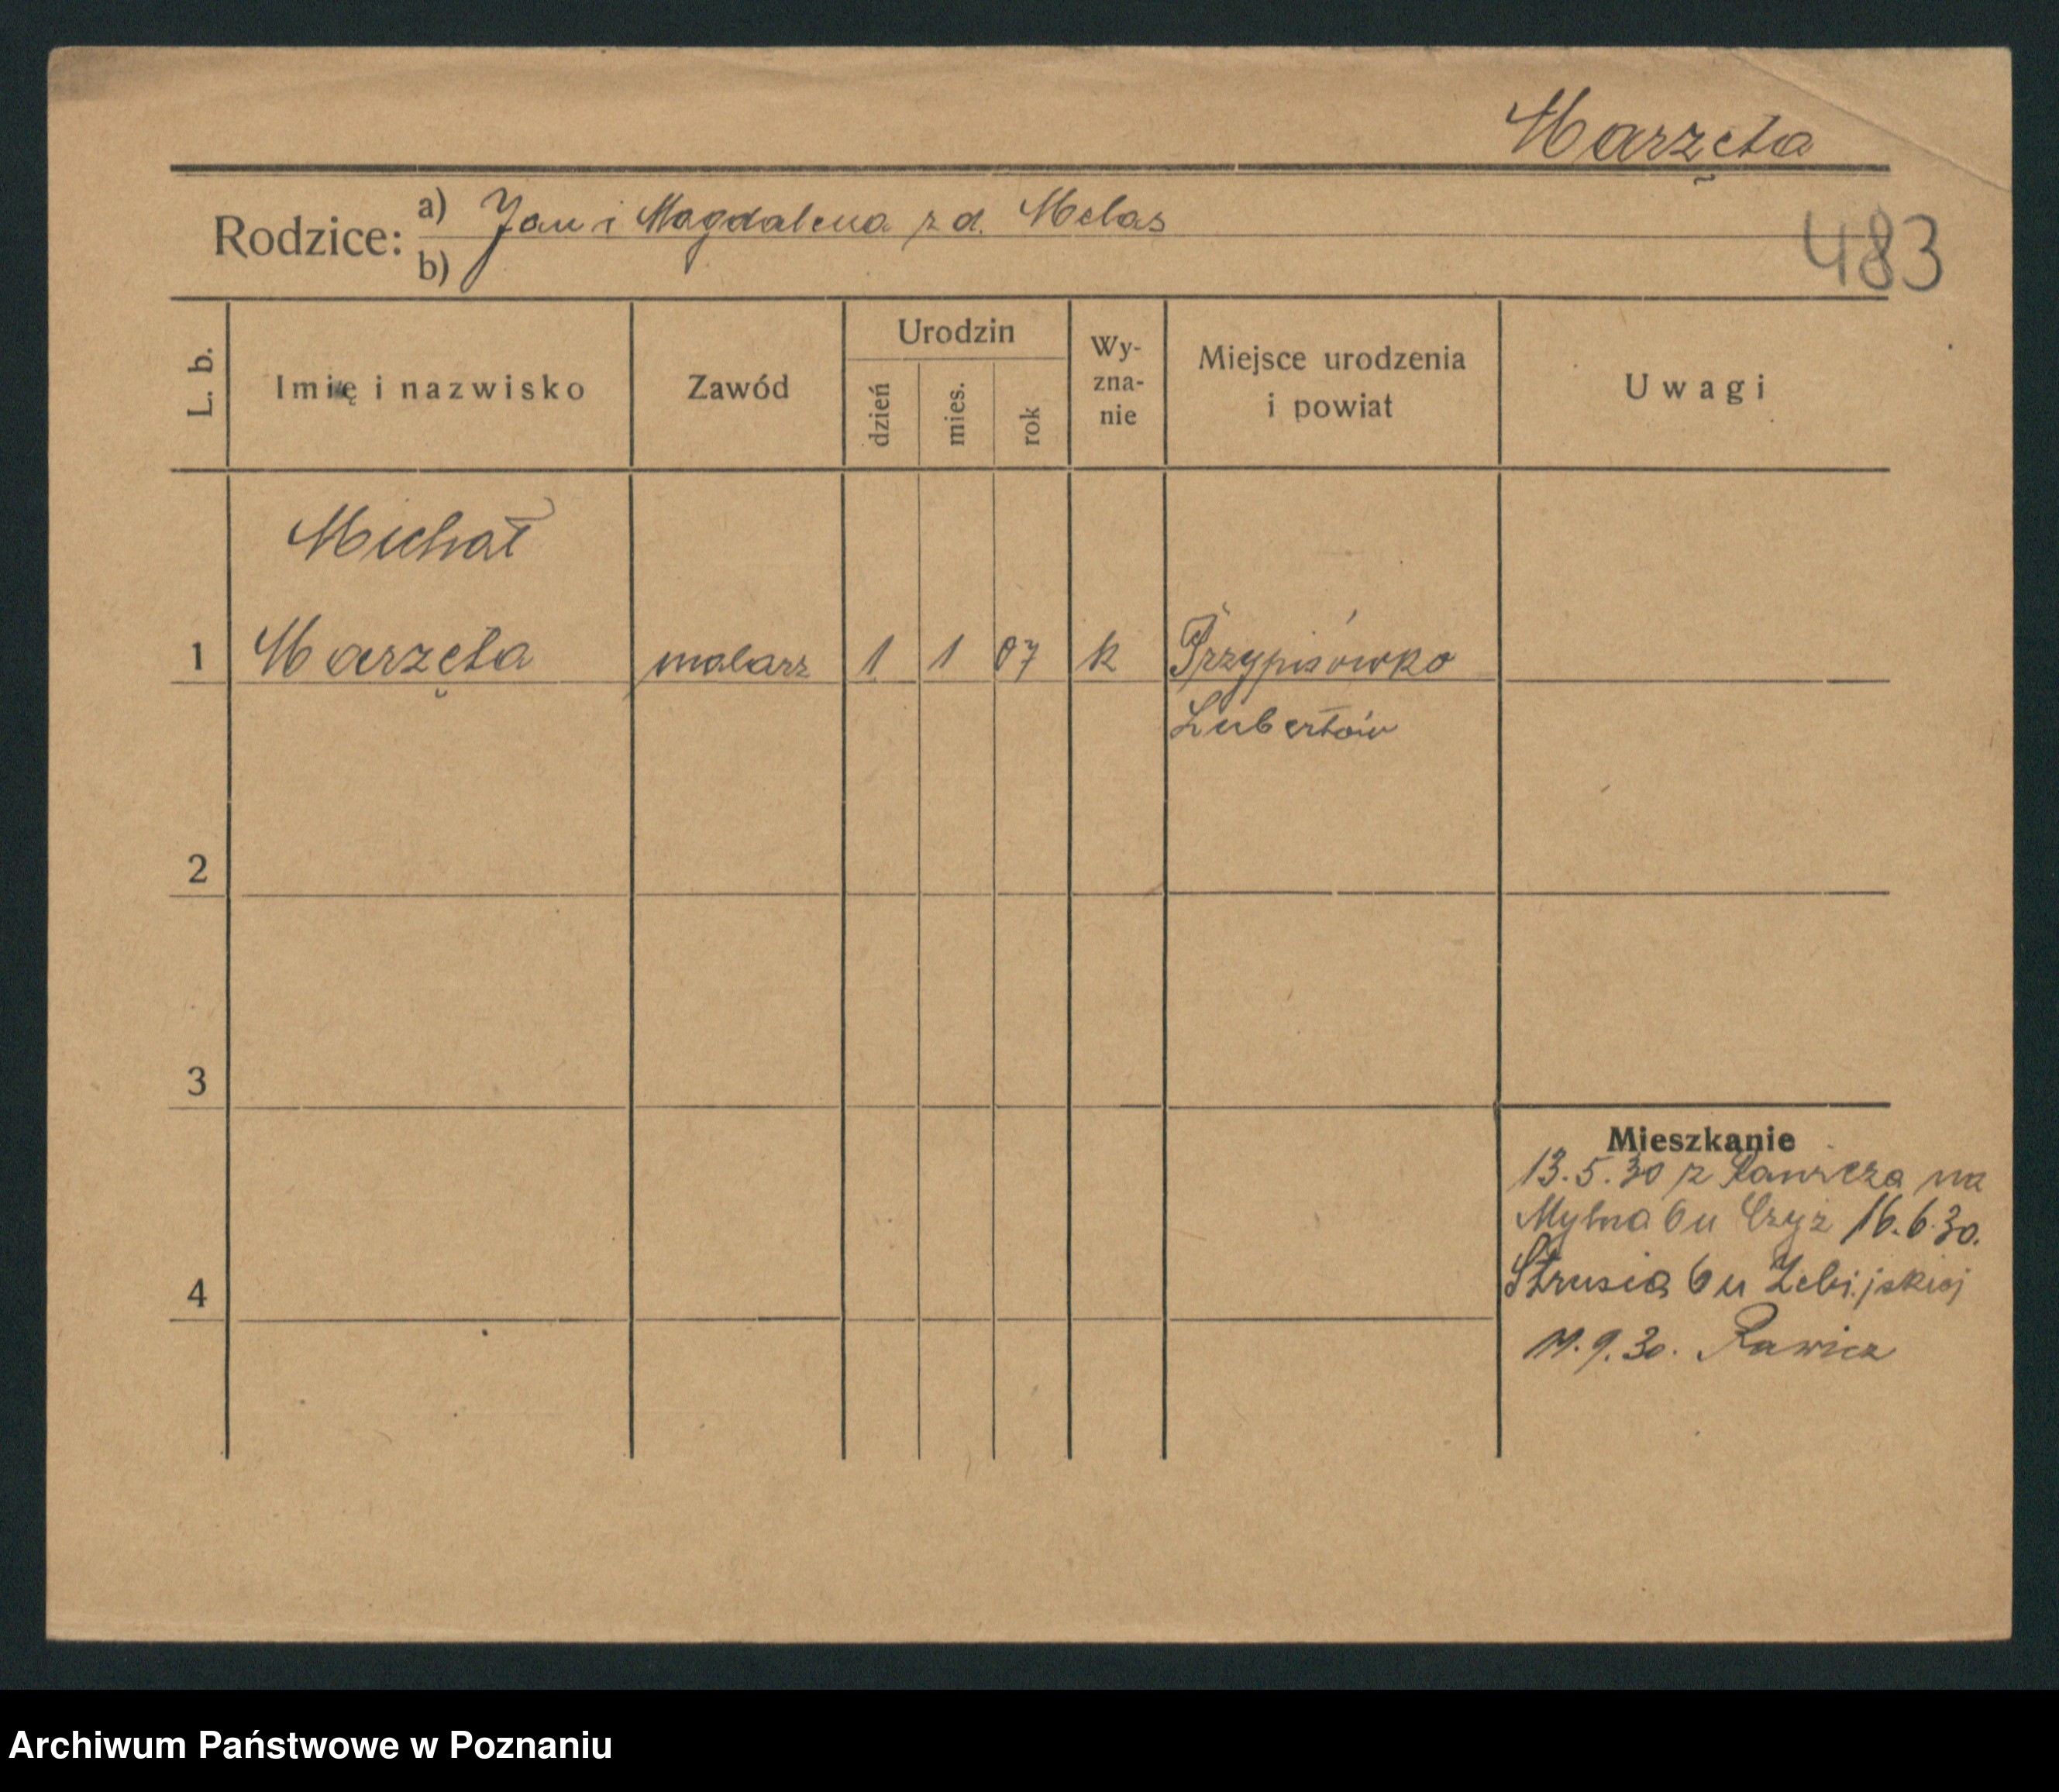 Marzęta
Rodzice: a) Jan i Magdalena z d. Melas
b)
483
L. b.
Imię i nazwisko
Zawód
Urodzin
dzień
mies.
rok
Wy-
zna-
nie
Miejsce urodzenia
i powiat
Uwagi
Michał
1 Marzęta malarz 1 1 07 k Przypisówka
Lubertów
2
3
4
Mieszkanie
13.5.30 z Rawicza na
Mylna 6 u Czyż 16.6.30.
Strusia 6 u
9.30. Rawicz
Archiwum Państwowe w Poznaniu